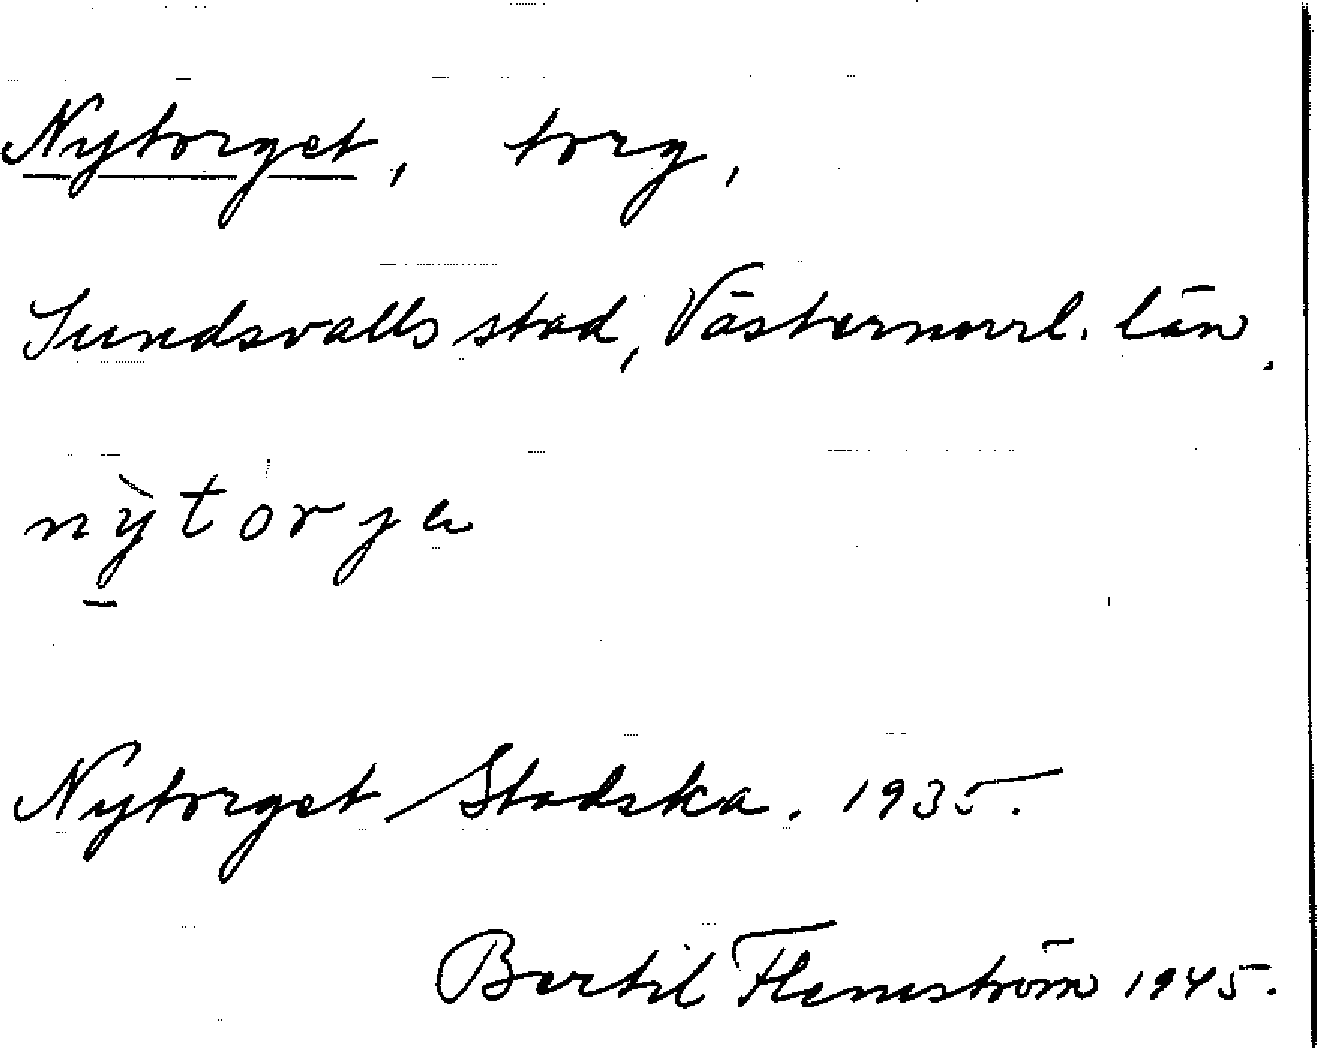 Nytorget, torg,
Sundsvalls stad, Västernorrl. län.
nỳtorjeͅ
Nytorget Stadska. 1935.
Bertil Flemström 1945.